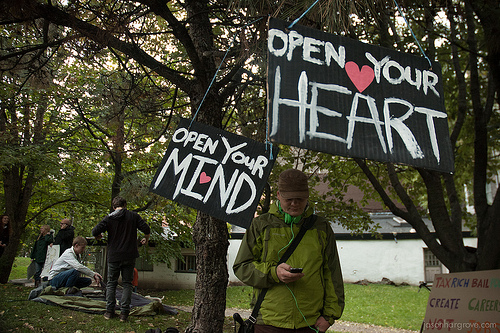 OPEN YOUR
HEART
OPEN YOUR
MIND
TAX RICH BAIL
CREATE CAREER